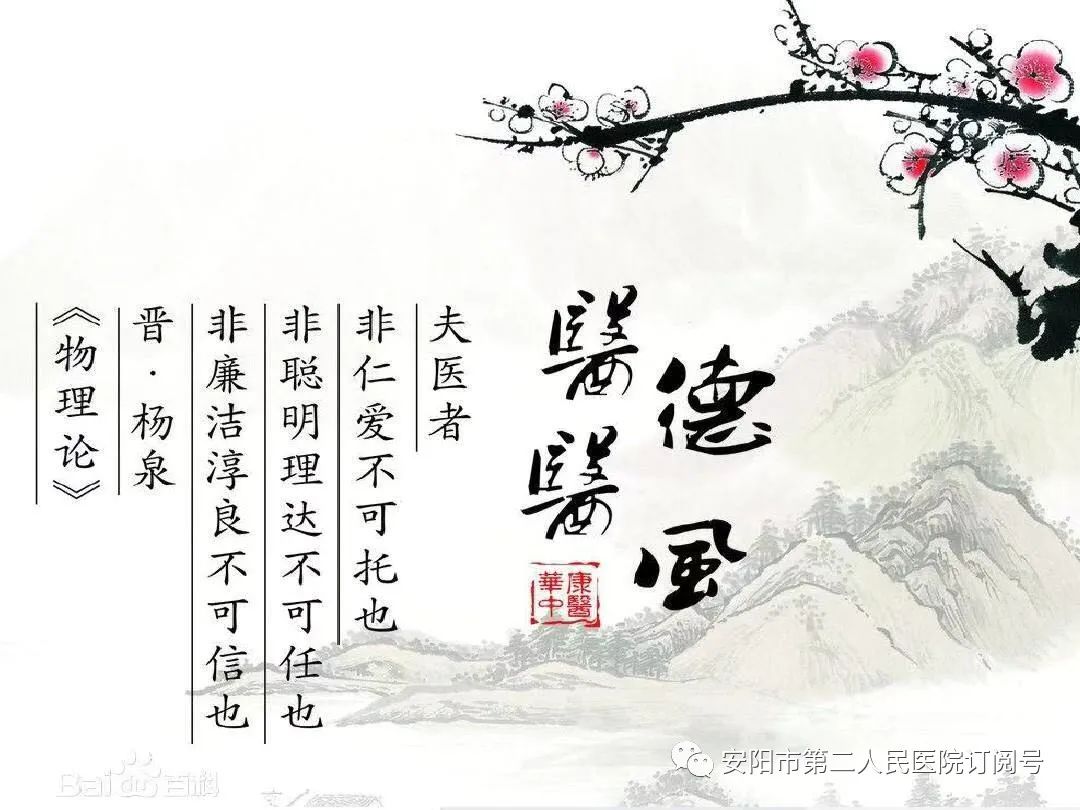 醫德
醫風
康醫
華中
夫医者
非仁爱不可托也
非聪明理达不可任也
非廉洁淳良不可信也
晋·杨泉
《物理论》
安阳市第二人民医院订阅号
Bai百科